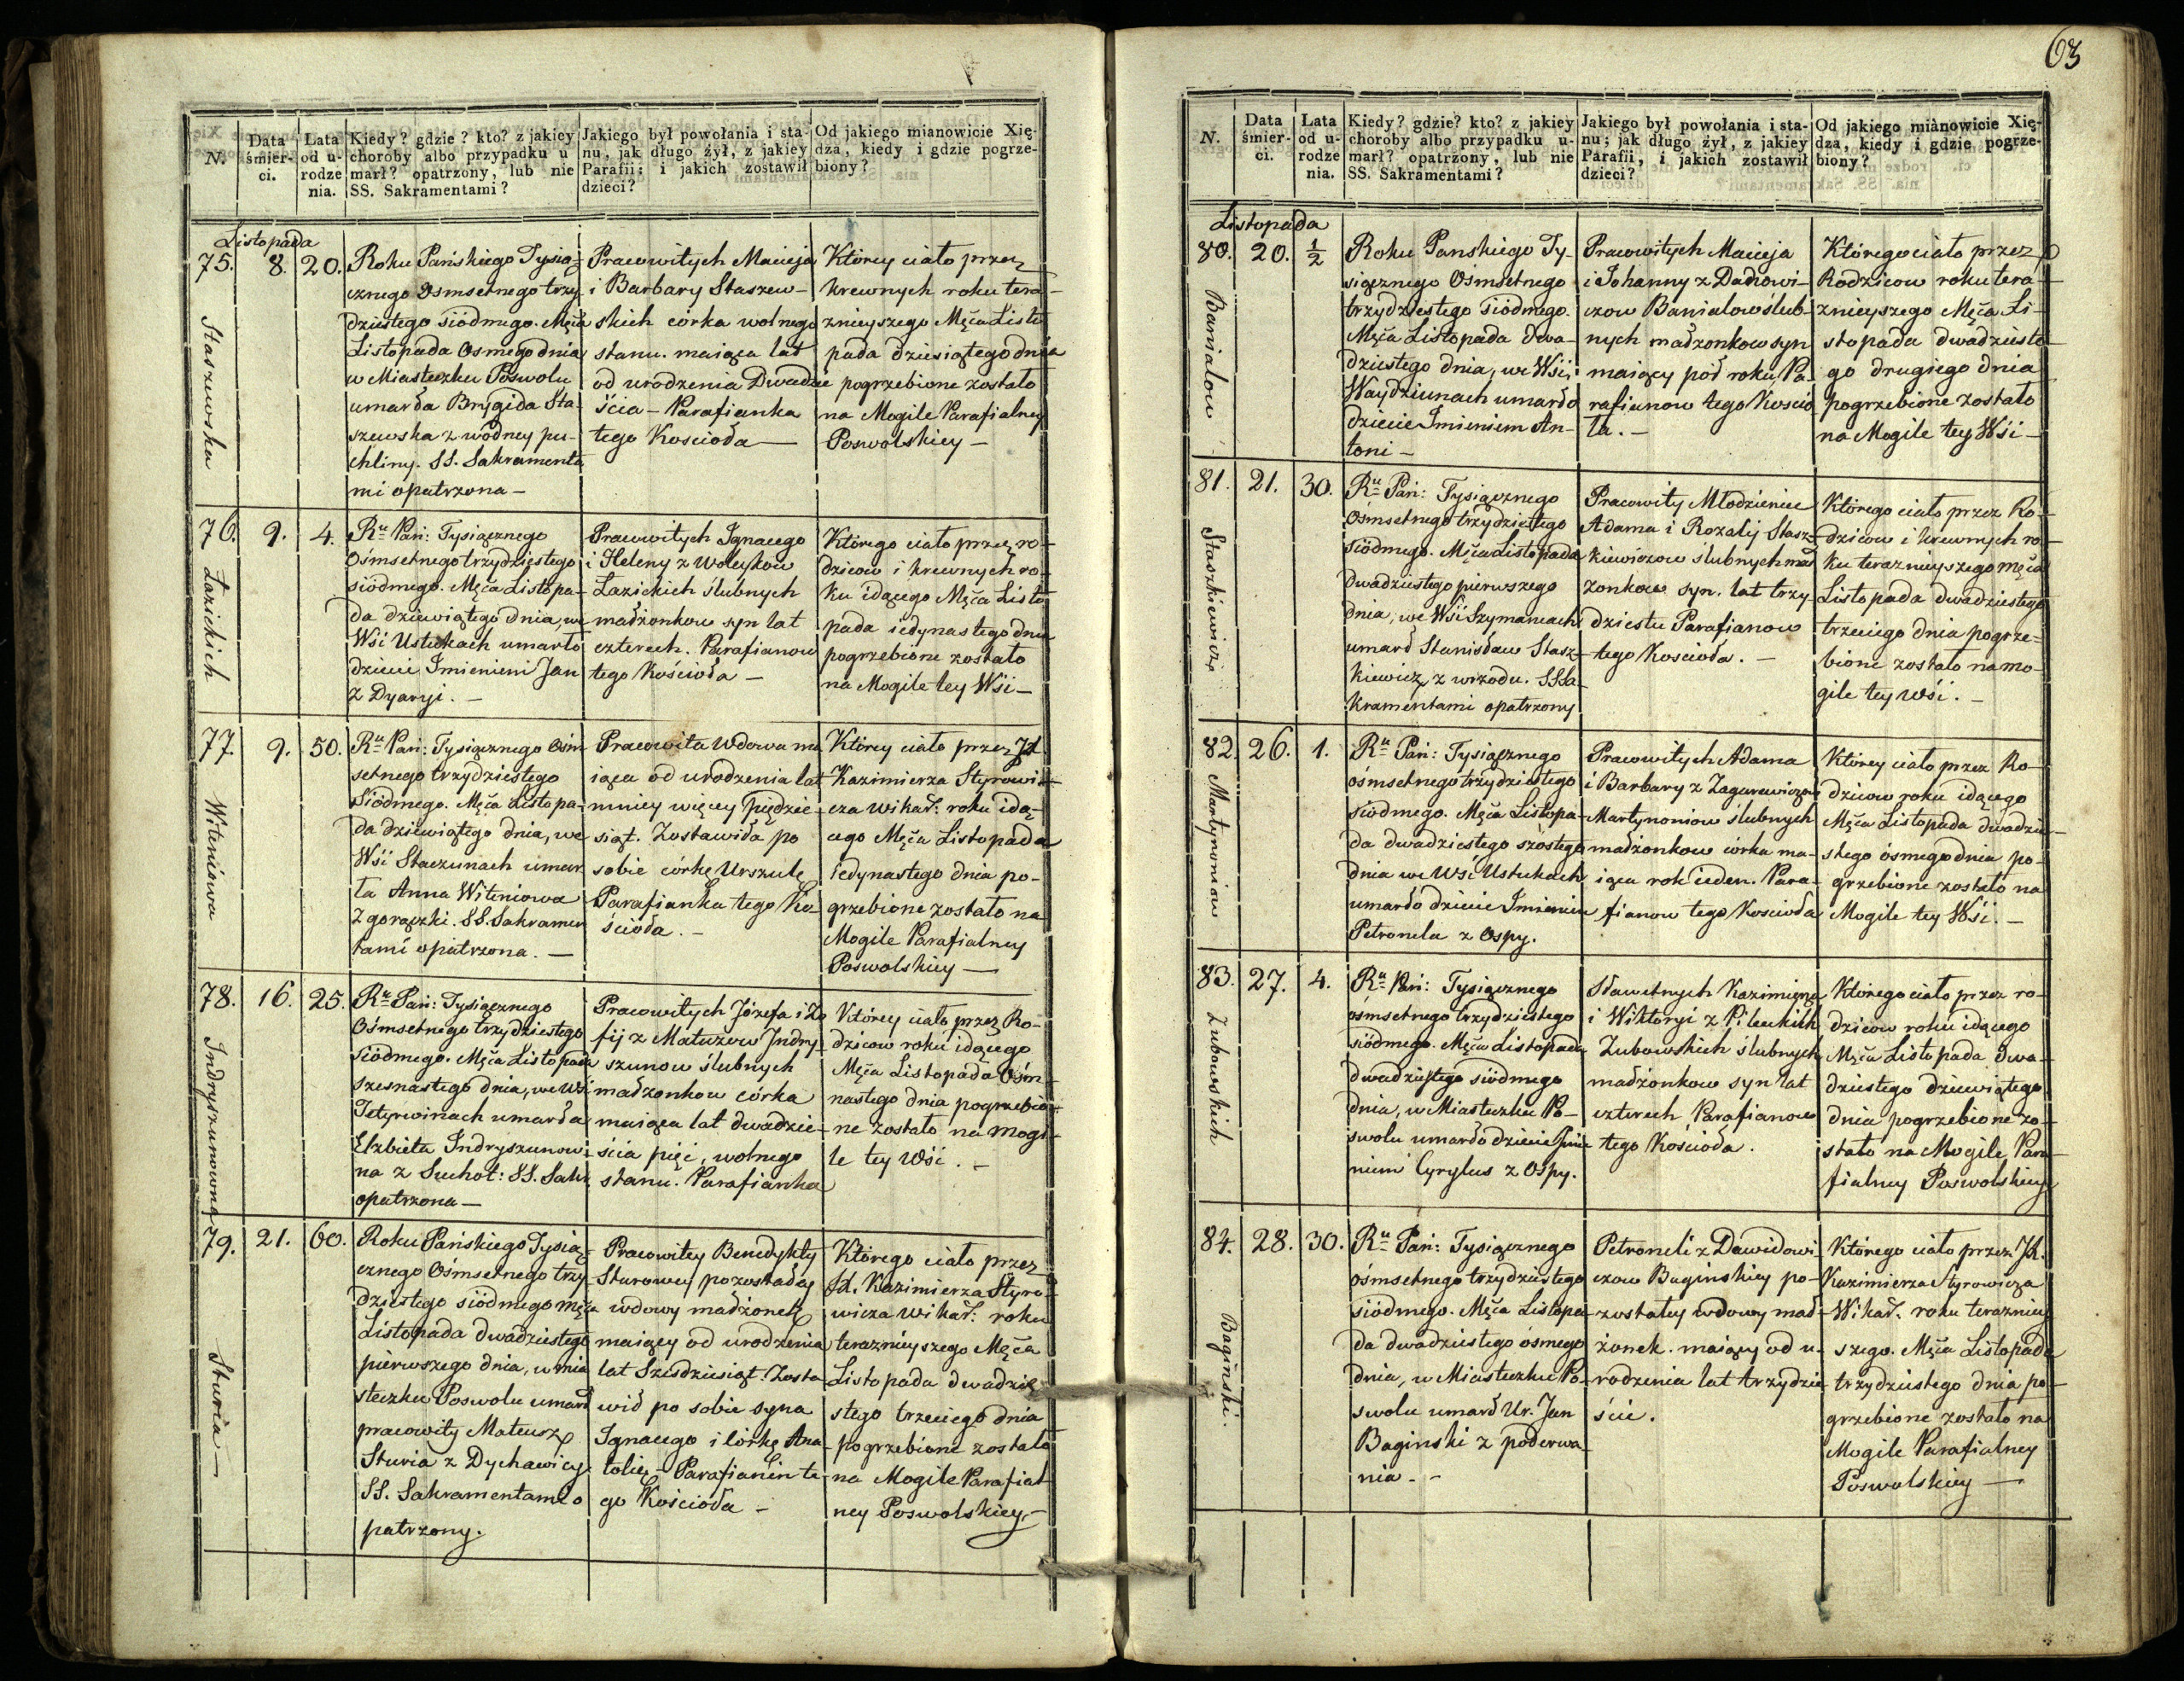 63
N.
Data śmierci.
Lata od urodzenia.
Kiedy? gdzie? kto? z jakiey
choroby albo przypadku u
marł? opatrzony, lub nie
SS. Sakramentami?
Jakiego był powołania i sta-
nu, jak długo żył, z jakiey
Parafii; i jakich zostawił
dzieci?
Od jakiego mianowicie Xię-
dza, kiedy i gdzie pogrze-
biony?
Listopada
75. 8. 20.
Staszewska
Roku Pańskiego Tysią-
cznego Osmsetnego trzy
dziestego siódmego. Męca
Listopada Osmego dnia
w Miasteczku Poswolu
umarła Brygida Sta-
szewska z wodney pu-
chliny. SS. Sakramenta
mi opatrzona –
Pracowitych Macieja
i Barbary Staszew-
skich córka wolnego
stanu. maiąca lat
od urodzenia Dwadzie
ścia – Parafianka
tego Kościoła –
Którey ciało przez
krewnych roku tera-
znieyszego Męca Listo
pada dziesiątego dnia
pogrzebione zostało
na Mogile Parafialney
Poswolskiey –
76. 9. 4.
Łazickich
Ru Pań: Tysiącznego
Ośmsetnego trzydziestego
siódmego. Męca Listopa-
da dziewiątego dnia, we
Wsi Ustukach umarło
dziecie Imieniem Jan
z Dyaryi. –
Pracowitych Ignacego
i Heleny z Woleykow
Łazickich ślubnych
małżonkow syn lat
czterech. Parafianow
tego Kościoła –
Którego ciało przez ro-
dzicow i krewnych ro-
ku idącego Męca Listo
pada iedynastego dnia
pogrzebione zostało
na Mogile tey Wśi –
77. 9. 50.
Witeniowa
Ru Pań: Tysiącznego Ośm
setnego trzydziestego
Siódmego. Męca Listopa-
da dziewiątego dnia, we
Wśi Staczunach umar
ła Anna Witeniowa
z gorączki. SS. Sakramen
tami opatrzona. –
Pracowita Wdowa ma
iąca od urodzenia lat
mniey więcey pędzie-
siąt. Zostawiła po
sobie córkę Urszulę
Parafianka tego Ko
ścioła. –
Którey ciało przez Jd.
Kazimierza Styrowi-
cza Wikar: roku idą-
cego Męca Listopada
iedynastego dnia po-
grzebione zostało na
Mogile Parafialney
Poswolskiey –
78. 16. 25.
Indryszunowna
Ru Pań: Tysiącznego
Ośmsetnego trzydziestego
siódmego. Męca Listopada
szesnastego dnia, we Wśi
Tetyrwinach umarła
Elżbieta Indryszunow-
na z Suchot: SS. Sakr.
opatrzona –
Pracowitych Józefa i Zo
fij z Matuzow Indry
szunow ślubnych
małżonkow córka
maiąca lat dwadzie-
ścia pięć, wolnego
stanu. Parafianka
Którey ciało przez Ro-
dzicow roku idącego
Męca Listopada Ośm-
nastego dnia pogrzebio-
ne zostało na mogi-
le tey Wśi. –
79. 21. 60.
Sturia –
Roku Pańskiego Tysią-
cznego Ośmsetnego trzy
dziestego siódmego męca
Listopada dwadziestego
pierwszego dnia, w mia
steczku Poswolu umarł
pracowity Mateusz
Sturia z Dychawicy
SS. Sakramentami o
patrzony.
Pracowitey Benedykty
Sturowey pozostałey
wdowy małżonek
maiący od urodzenia
lat Szesdziesiąt. Zosta
wił po sobie syna
Ignacego i córkę Ana
tolię – Parafianin te
go Kościoła –
Którego ciało przez
Jd. Kazimierza Styro-
wicza Wikar: roku
teraznieyszego Męca
Listopada dwadzie
stego trzeciego dnia
pogrzebione zostało
na Mogile Parafial
ney Poswolskiey –
N.
Data śmierci.
Lata od urodzenia.
Kiedy? gdzie? kto? z jakiey
choroby albo przypadku u-
marł? opatrzony, lub nie
SS. Sakramentami?
Jakiego był powołania i sta-
nu; jak długo żył, z jakiey
Parafii, i jakich zostawił
dzieci?
Od jakiego mianowicie Xię-
dza, kiedy i gdzie pogrze-
biony?
Listopada
80. 20. ½
Banialow
Roku Panskiego Ty-
siącznego Ośmsetnego
trzydziestego siódmego.
Męca Listopada dwa-
dziestego dnia, we Wśi,
Waydziunach umarło
dziecie Imieniem An-
toni –
Pracowitych Macieja
i Johanny z Dackowi-
czow Banialow ślub-
nych małżonkow syn
maiący pół roku, Pa-
rafianow tego Koscio
ła. –
Którego ciało przez
Rodzicow roku tera-
znieyszego Męca Li-
stopada dwadzieste
go drugiego dnia
pogrzebione zostało
na Mogile tey Wśi –
81. 21. 30.
Staszkiewicz
Ru Pań: Tysiącznego
Ośmsetnego trzydziestego
siódmego. Męca Listopada
dwadziestego pierwszego
dnia, we Wśi Szymaniach
umarł Stanisław Stasz-
kiewicz z wrzodu. SSSa-
kramentami opatrzony
Pracowity Młodzieniec
Adama i Rozalij Stasz-
kiewiczow ślubnych mał
żonkow syn. lat trzy-
dziestu Parafianow
tego Kościoła. –
Którego ciało przez Ro-
dzicow i krewnych ro-
ku teraznieyszego męca
Listopada dwadziestego
trzeciego dnia pogrze-
bione zostało na mo-
gile tey wśi. –
82. 26. 1.
Martynoniow
Ru Pań: Tysiącznego
ośmsetnego trzydziestego
siódmego. Męca Listopa-
da dwadziestego szóstego
dnia we Wśi Ustukach
umarło dziecie Imieniem
Petronela z Ospy.
Pracowitych Adama
i Barbary z Zagurewiczow
Martynoniow ślubnych
małżonkow córka ma-
iąca rok ieden. Para-
fianow tego Kościoła
Którey ciało przez Ro-
dzicow roku idącego
Męca Listopada dwadzie-
stego ósmego dnia po-
grzebione zostało na
Mogile tey Wśi. –
83. 27. 4.
Zubowskich
Ru Pań: Tysiącznego
ósmsetnego trzydziestego
siódmego. Męca Listopada
dwadziestego siódmego
dnia, w Miasteczku Po-
swolu umarło dziecie Imie
niem Cyrylus z Ospy.
Sławetnych Kazimierza
i Wiktoryi z Pileckich
Zubowskich ślubnych
małżonkow syn lat
czterech Parafianow
tego Kościoła.
Którego ciało przez ro-
dzicow roku idącego
Męca Listopada dwa-
dziestego dziewiątego
dnia pogrzebione zo-
stało na Mogile Para-
fialney Poswolskiey
84. 28. 30.
Baginski.
Ru Pań: Tysiącznego
ośmsetnego trzydziestego
siódmego. Męca Listopa-
da dwadziestego ósmego
dnia, w Miasteczku Po-
swolu umarł Ur. Jan
Baginski z poderwa-
nia. –
Petroneli z Dawidowi
czow Baginskiey po-
zostałey wdowy mał-
żonek. maiący od u-
rodzenia lat trzydzie
ści.
Którego ciało przez Jd.
Kazimierza Styrowicza
Wikar. roku terazniey
szego. Męca Listopada
trzydziestego dnia po-
grzebione zostało na
Mogile Parafialney
Poswolskiey –